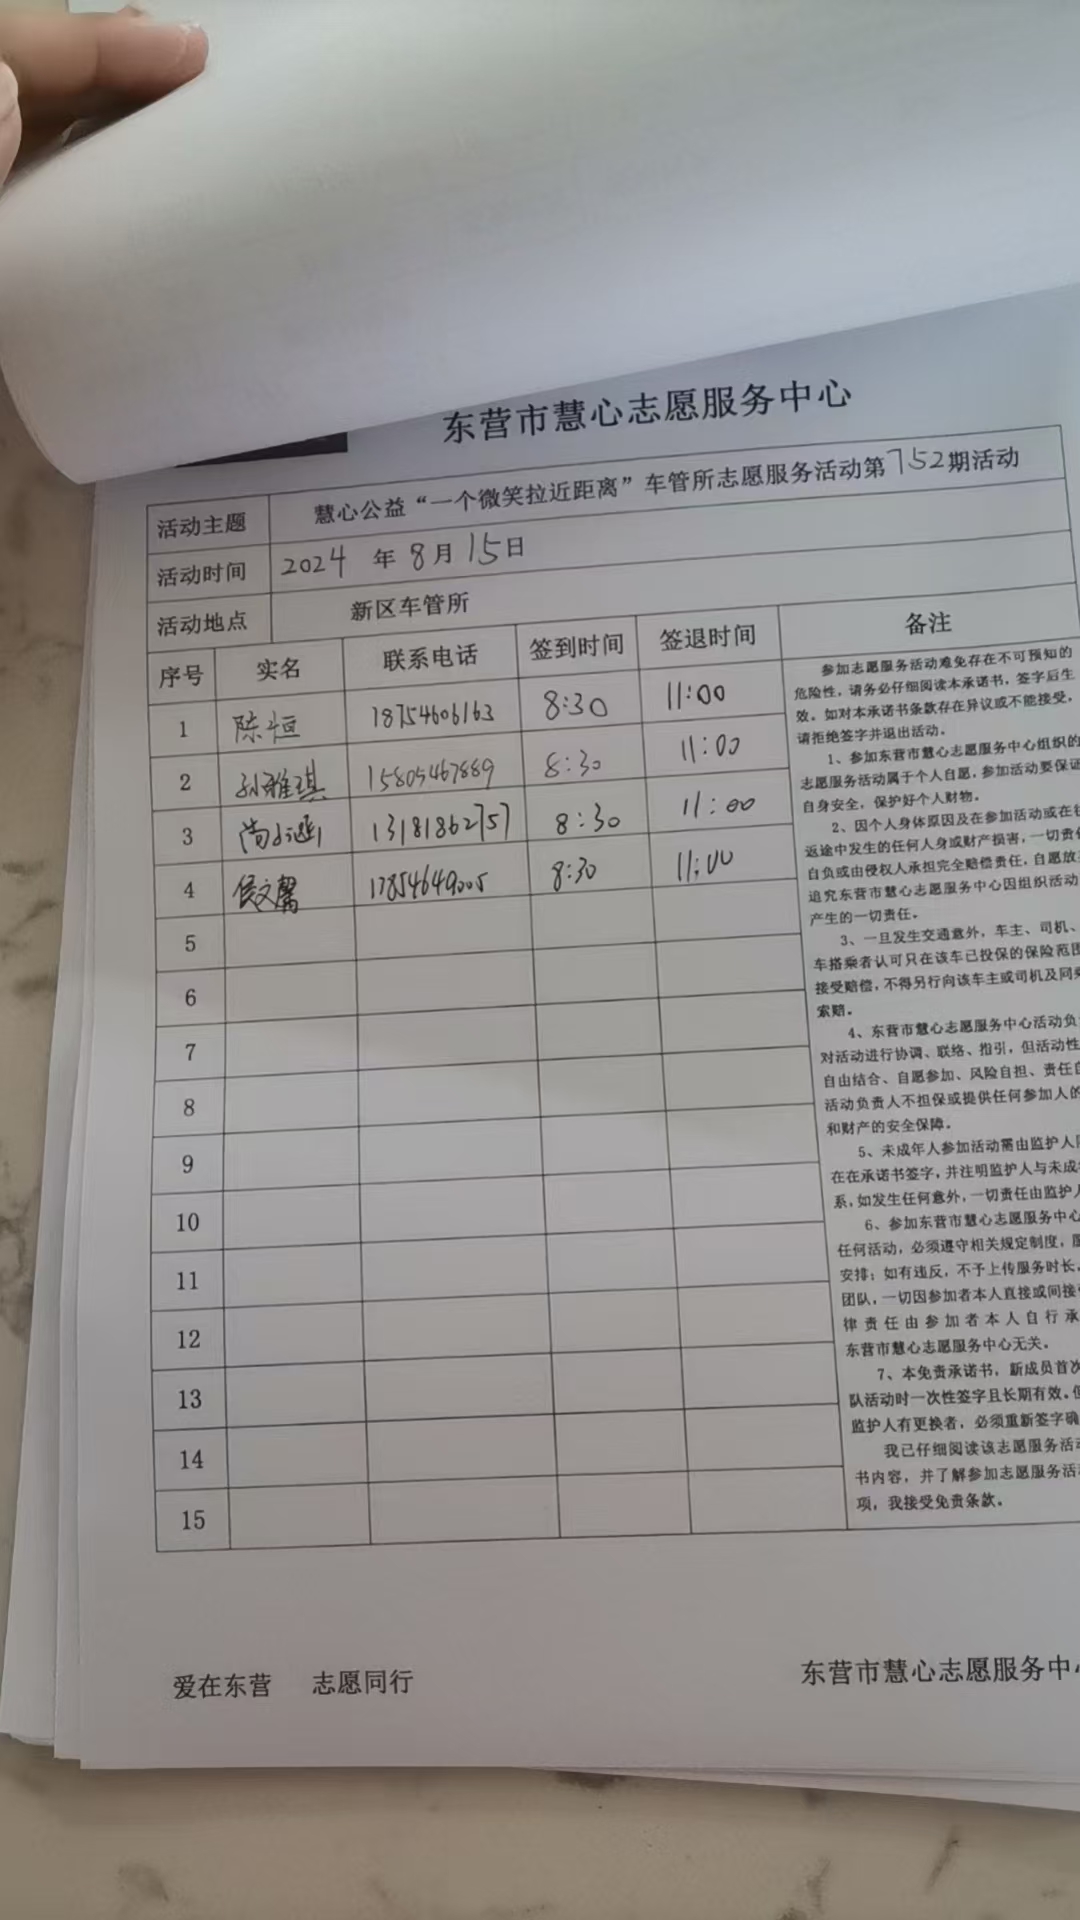 东营市慧心志愿服务中心
活动主题 慧心公益“一个微笑拉近距离”车管所志愿服务活动第752期活动
活动时间 2024 年 8月 15日
活动地点 新区车管所
序号 实名 联系电话 签到时间 签退时间 备注
1 陈恒 18754606163 8:30 11:00
2 孙雅琪 15805467889 8:30 11:00
3 尚 13181862757 8:30 11:00
4 侯文馨 17854649005 8:30 11:00
5
6
7
8
9
10
11
12
13
14
15
参加志愿服务活动难免存在不可预知的
危险性，请务必仔细阅读本承诺书，签字后生
效。如对本承诺书条款存在异议或不能接受，
请拒绝签字并退出活动。
1、参加东营市慧心志愿服务中心组织的
志愿服务活动属于个人自愿，参加活动要保证
自身安全，保护好个人财物。
2、因个人身体原因及在参加活动或在往
返途中发生的任何人身或财产损害，一切责任
自负或由侵权人承担完全赔偿责任，自愿放弃
追究东营市慧心志愿服务中心因组织活动
产生的一切责任。
3、一旦发生交通意外，车主、司机、
车搭乘者认可只在该车已投保的保险范围
接受赔偿，不得另行向该车主或司机及同乘
索赔。
4、东营市慧心志愿服务中心活动负
对活动进行协调、联络、指引，但活动性
自由结合、自愿参加、风险自担、责任自
活动负责人不担保或提供任何参加人的
和财产的安全保障。
5、未成年人参加活动需由监护人陪
在在承诺书签字，并注明监护人与未成年
系，如发生任何意外，一切责任由监护人
6、参加东营市慧心志愿服务中心
任何活动，必须遵守相关规定制度，服
安排；如有违反，不予上传服务时长，
团队，一切因参加者本人直接或间接
律责任由参加者本人自行承
东营市慧心志愿服务中心无关。
7、本免责承诺书，新成员首次
队活动时一次性签字且长期有效。但
监护人有更换者，必须重新签字确
我已仔细阅读该志愿服务活动
书内容，并了解参加志愿服务活动
项，我接受免责条款。
爱在东营 志愿同行
东营市慧心志愿服务中心